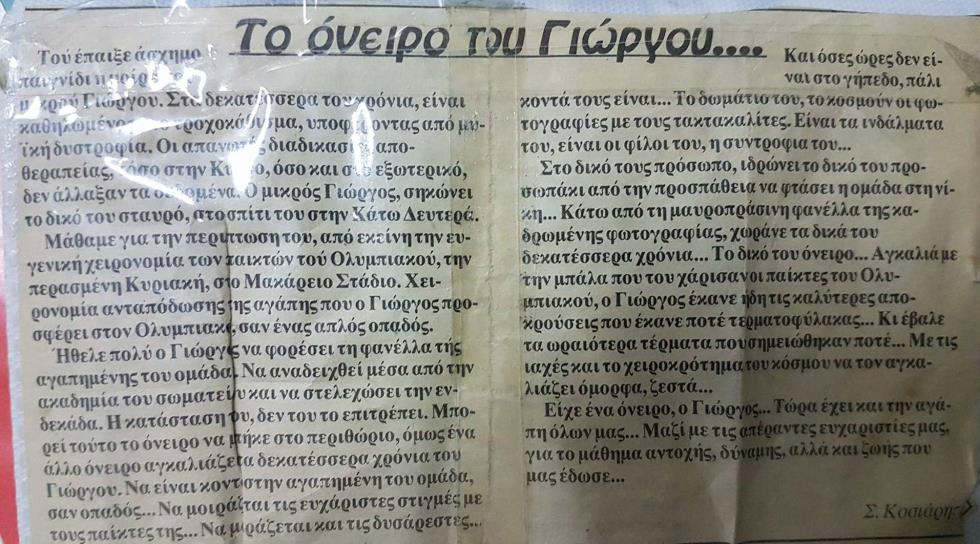 Το όνειρο του Γιώργου....
Τού έπαιξε άσχημο
παιγνίδι η μοίρα
μικρού Γιώργου. Στα δεκατέσσερα του χρόνια, είναι
καθηλωμένος στο τροχοκάθισμα, υποφέροντας από μυ-
ϊκή δυστροφία. Οι απανωτές διαδικασίες απο-
θεραπείας, τόσο στην Κύπρο, όσο και στο εξωτερικό,
δεν άλλαξαν τα δεδομένα. Ο μικρός Γιώργος, σηκώνει
το δικό του σταυρό, στο σπίτι του στην Κάτω Δευτερά.
Μάθαμε για την περίπτωση του, από εκείνη την ευ-
γενική χειρονομία των παικτών τού Ολυμπιακού, την
περασμένη Κυριακή, στο Μακάρειο Στάδιο. Χει-
ρονομία ανταπόδωσης της αγάπης που ο Γιώργος προ-
σφέρει στον Ολυμπιακό, σαν ένας απλός οπαδός.
Ήθελε πολύ ο Γιώργος να φορέσει τη φανέλλα τής
αγαπημένης του ομάδας. Να αναδειχθεί μέσα από την
ακαδημία του σωματείου και να στελεχώσει την εν-
δεκάδα. Η κατάσταση του, δεν του το επιτρέπει. Μπο-
ρεί τούτο το όνειρο να μπήκε στο περιθώριο, όμως ένα
άλλο όνειρο αγκαλιάζει τα δεκατέσσερα χρόνια του
Γιώργου. Να είναι κοντά στην αγαπημένη του ομάδα,
σαν οπαδός... Να μοιράζεται τις ευχάριστες στιγμές με
τους παίκτες της... Να μοιράζεται και τις δυσάρεστες...
Και όσες ώρες δεν εί-
ναι στο γήπεδο, πάλι
κοντά τους είναι... Το δωμάτιο του, το κοσμούν οι φω-
τογραφίες με τους τακτακαλίτες. Είναι τα ινδάλματα
του, είναι οι φίλοι του, η συντροφια του...
Στο δικό τους πρόσωπο, ιδρώνει το δικό του προ-
σωπάκι από την προσπάθεια να φτάσει η ομάδα στη νί-
κη... Κάτω από τη μαυροπράσινη φανέλλα της κα-
δρωμένης φωτογραφίας, χωράνε τα δικά του
δεκατέσσερα χρόνια... Το δικό του όνειρο... Αγκαλιά με
την μπάλα που του χάρισαν οι παίκτες του Ολυ-
μπιακού, ο Γιώργος έκανε ήδη τις καλύτερες απο-
κρούσεις που έκανε ποτέ τερματοφύλακας... Κι έβαλε
τα ωραιότερα τέρματα που σημειώθηκαν ποτέ... Με τις
ιαχές και το χειροκρότημα του κόσμου να τον αγκα-
λιάζει όμορφα, ζεστά...
Είχε ένα όνειρο, ο Γιώργος... Τώρα έχει και την αγά-
πη όλων μας... Μαζί με τις απέραντες ευχαριστίες μας,
για το μάθημα αντοχής, δύναμης, αλλά και ζωής που
μας έδωσε...
Σ. Κοσιάρης